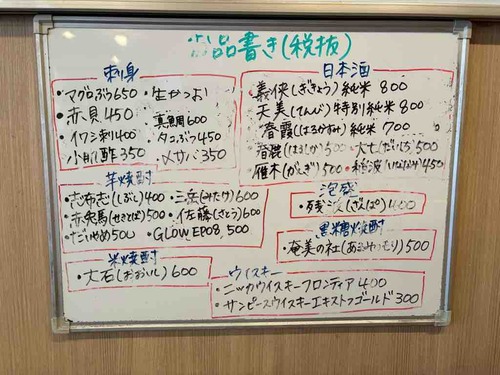 品書き(税抜)
刺身
・マグロぶつ650 ・生かつお
・赤貝450 真鯛600
・イワシ刺400 タコぶつ450
・小肌酢350 ・〆サバ350
日本酒
・義侠(ぎきょう)純米 800
・天美(てんび)特別純米 800
・春霞(はるかすみ)純米 700
500 ・大七(だいしち)500
・雁木(がんぎ)500 450
芋焼酎
・志布志(しぶし)400 ・三岳(みたけ)600
・赤兎馬(せきとば)500 ・佐藤(さとう)600
・だいやめ500 ・GLOW EP08, 500
泡盛
・残波(ざんぱ)400
黒糖焼酎
・奄美の杜(あまみのもり)500
米焼酎
・大石(おおいし)600
ウイスキー
・ニッカウイスキーフロンティア400
・サンピースウイスキーエキストラゴールド300